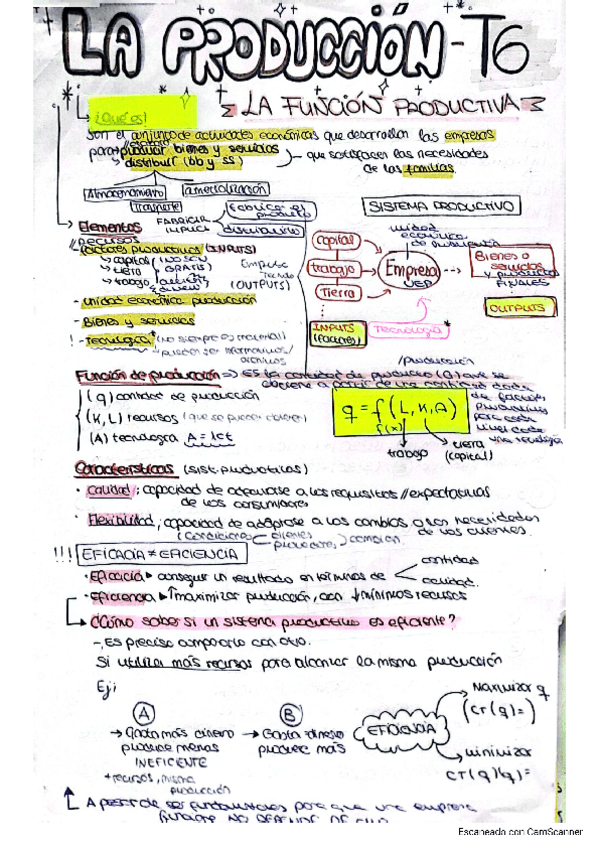 LA PRODUCCIÓN - T6
LA FUNCIÓN PRODUCTIVA
¿Qué es?
Son el conjunto de actividades económicas que desarrollan las empresas
para producir bienes y servicios
distribuir (bb y ss)
que satisfacen las necesidades
de las familias
Almacenamiento
comercialización
Transporte
FABRICAR
IMPLICA
Fabricar el
producto
distribuirlo
SISTEMA PRODUCTIVO
Elementos
// recursos
factores productivos (INPUTS)
capital
tierra
trabajo
(NO SON
GRATIS)
(OUTPUTS)
- Unidad económica producción
- Bienes y servicios
! - Tecnología (no siempre es material)
capital
trabajo
Tierra
unidad
económica
de producción
Empresa
UEP
Bienes o
servicios
y productos
FINALES
OUTPUTS
INPUTS
(Factores)
Tecnología *
Función de producción → Es la cantidad de producto (Q) que se
obtiene a partir de una cantidad dada
de factores
productivos
para cada
nivel dado
una tecnología
(q) cantidad de producción
(K, L) recursos (que se pueden obtener)
(A) tecnología A = lct
q = f(L, K, A)
f(x)
trabajo
tierra
(capital)
Características (sist. productivos)
· Calidad; capacidad de adecuarse a los requisitos // expectativas
de los consumidores
· Flexibilidad; capacidad de adaptarse a los cambios o las necesidades
de los clientes.
(Condiciones
clientes
cambian
!!! EFICACIA ≠ EFICIENCIA
· Eficacia ▸ conseguir un resultado en términos de
cantidad
calidad.
· Eficiencia ▸ ↑maximizar producción, con ↓mínimos recursos
¿Cómo saber si un sistema productivo es eficiente?
-, Es preciso compararlo con otro.
Si utiliza más recursos para alcanzar la misma producción
Ej:
A
→ Gasta más dinero
produce menos
INEFICIENTE
+ recursos, misma
producción
B
→ Gasta dinero
produce más
EFICIENCIA
Maximizar q
(CT (q) = )
minimizar
CT (q) =
A pesar de ser fundamentales para que una empresa
funcione NO DEPENDE DE ELLO
Escaneado con CamScanner